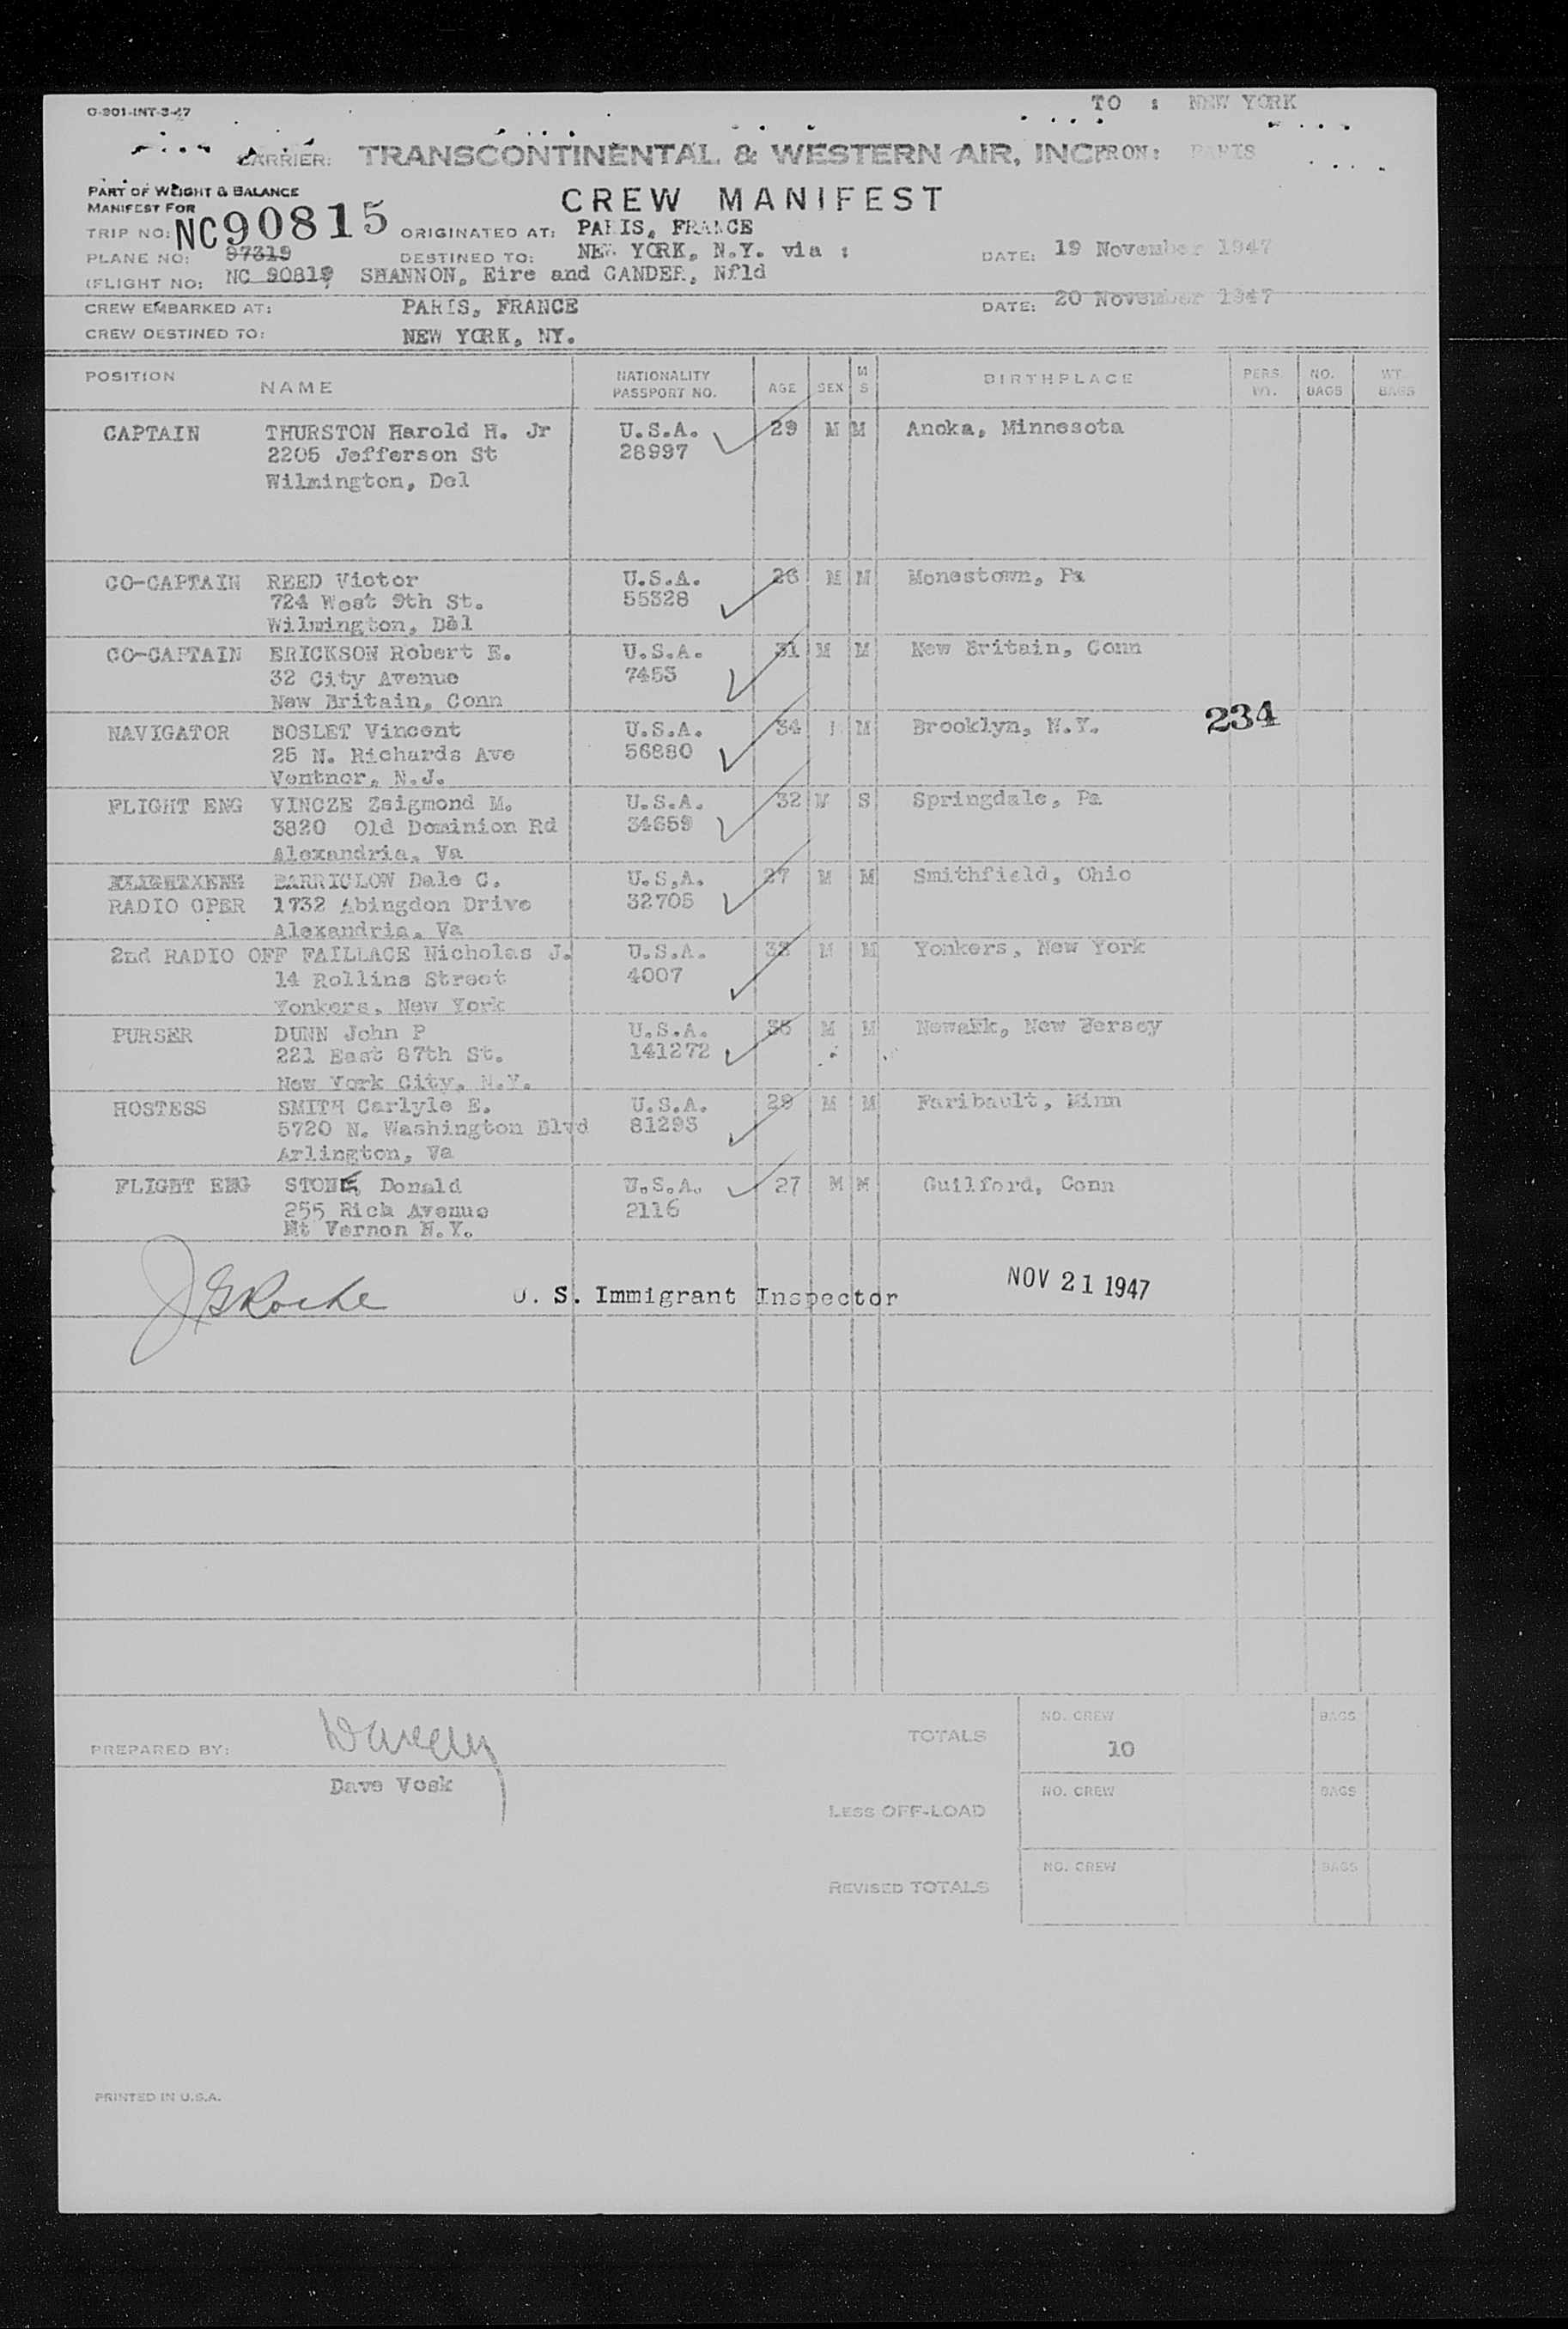 O-901-INT-3-47
TO : NEW YORK
CARRIER: TRANSCONTINENTAL & WESTERN AIR, INC. FROM: PARIS
PART OF WEIGHT & BALANCE
MANIFEST FOR
CREW MANIFEST
TRIP NO: NC90815 ORIGINATED AT: PARIS, FRANCE
PLANE NO: 97319 DESTINED TO: NEW YORK, N.Y. via : DATE: 19 November 1947
(FLIGHT NO: NC 90819 SHANNON, Eire and GANDER, Nfld
CREW EMBARKED AT: PARIS, FRANCE DATE: 20 November 1947
CREW DESTINED TO: NEW YORK, NY.
POSITION NAME NATIONALITY PASSPORT NO. AGE SEX M S BIRTHPLACE PERS. WT. NO. BAGS WT. BAGS
CAPTAIN THURSTON Harold H. Jr U.S.A. 29 M M Anoka, Minnesota
2205 Jefferson St 28997
Wilmington, Del
CO-CAPTAIN REED Victor U.S.A. 26 M M Monestown, Pa
724 West 9th St. 55328
Wilmington, Del
CO-CAPTAIN ERICKSON Robert E. U.S.A. 31 M M New Britain, Conn
32 City Avenue 7453
New Britain, Conn
NAVIGATOR BOSLET Vincent U.S.A. 34 M Brooklyn, N.Y. 234
25 N. Richards Ave 56880
Ventnor, N.J.
FLIGHT ENG VINCZE Zsigmond M. U.S.A. 32 M S Springdale, Pa
3820 Old Dominion Rd 34659
Alexandria, Va
BARRICLOW Dale C. U.S.A. 27 M M Smithfield, Ohio
RADIO OPER 1732 Abingdon Drive 32705
Alexandria, Va
2nd RADIO OFF FAILLACE Nicholas J. U.S.A. 33 M M Yonkers, New York
14 Rollins Street 4007
Yonkers, New York
PURSER DUNN John P U.S.A. 35 M M Newark, New Jersey
221 East 87th St. 141272
New York City, N.Y.
HOSTESS SMITH Carlyle E. U.S.A. 29 M M Faribault, Minn
5720 N. Washington Blvd 81293
Arlington, Va
FLIGHT ENG STONE, Donald U.S.A. 27 M M Guilford, Conn
255 Rich Avenue 2116
Mt Vernon N.Y.
J G Roche U. S. Immigrant Inspector NOV 21 1947
PREPARED BY:
Dave Vosk
TOTALS NO. CREW 10 BAGS
LESS OFF-LOAD NO. CREW BAGS
REVISED TOTALS NO. CREW BAGS
PRINTED IN U.S.A.